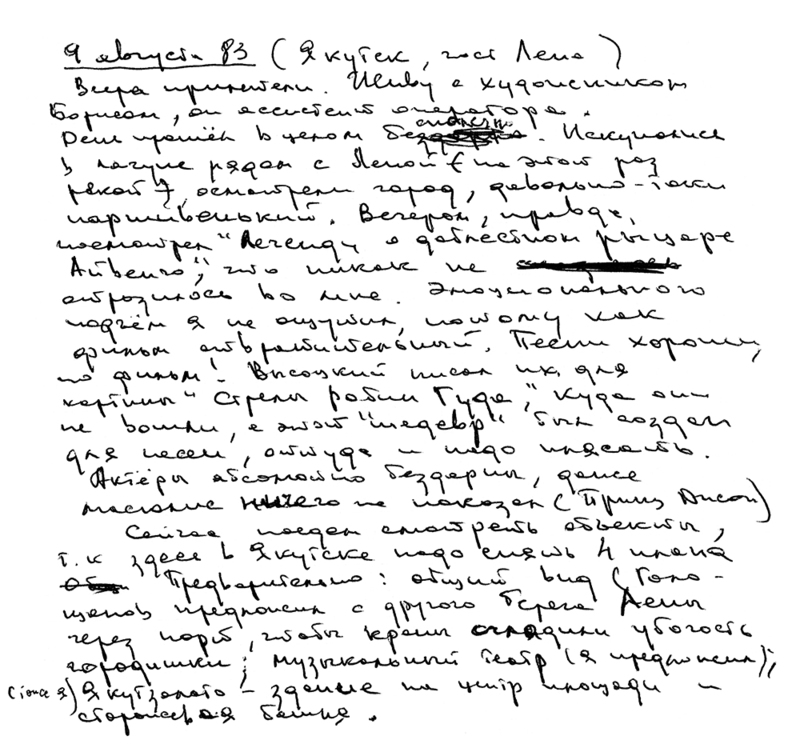 9 августа 83 (Якутск, гост Лена)
Вчера прилетели. Живу с художником
Борисом, он ассистент оператора.
День прошёл в целом бездарно. Искупались
в лагуне рядом с Леной (на этот раз
рекой), осмотрели город, довольно-таки
паршивенький. Вечером, правда,
посмотрел "Легенду о доблестном рыцаре
Айвенго", что никак не
отразилось во мне. Эмоционального
подъём я не ощутил, потому как
фильм отвратительный. Песни хороши,
но фильм! Высоцкий писал их для
картины "Стрелы робин Гуда", куда они
не вошли, а этот "шедевр" был создан
для песен, оттуда и надо плясать.
Актёры абсолютно бездарны, даже
Масюлис ничего не показал (Принц Джон)
Сейчас поедем смотреть объекты,
т.к здесь в Якутске надо снять 4 плана
Предварительно: общий вид (Голо-
щапов предложил с другого берега Лены
через порт, чтобы краны сгладили убогость
городишки; музыкальный театр (я предложил);
(тоже я) Якутзолото - здание на центр площади и
сторожевая башня.